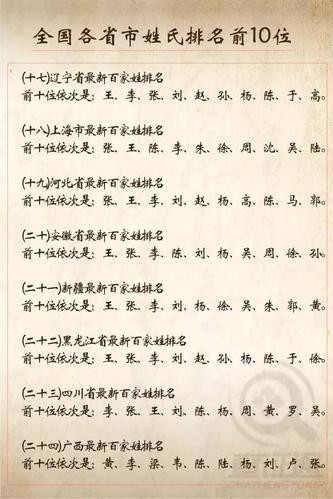 全国各省市姓氏排名前10位
(十七)辽宁省最新百家姓排名
前十位依次是：王、李、张、刘、赵、孙、杨、陈、于、高。
(十八)上海市最新百家姓排名
前十位依次是：张、王、陈、李、朱、徐、周、沈、吴、陆。
(十九)河北省最新百家姓排名
前十位依次是：张、王、李、刘、赵、杨、高、陈、马、郭。
(二十)安徽省最新百家姓排名
前十位依次是：王、张、李、陈、刘、杨、吴、周、徐、孙。
(二十一)新疆最新百家姓排名
前十位依次是：王、张、李、刘、杨、徐、吴、朱、郭、黄。
(二十二)黑龙江省最新百家姓排名
前十位依次是：王、张、李、刘、赵、孙、杨、陈、于、徐。
(二十三)四川省最新百家姓排名
前十位依次是：李、张、王、刘、陈、杨、周、黄、罗、吴。
(二十四)广西最新百家姓排名
前十位依次是：黄、李、梁、韦、陈、陆、杨、刘、卢、张。